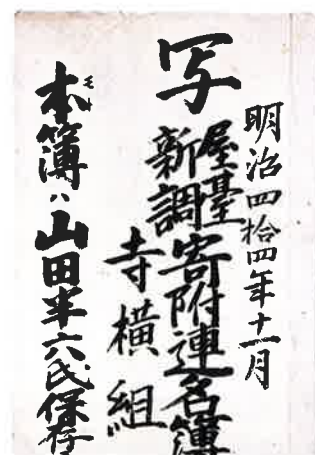 明治四拾四年十一月
写
屋臺
新調
寄附連名簿
寺横組
本簿ハ山田半六氏保存